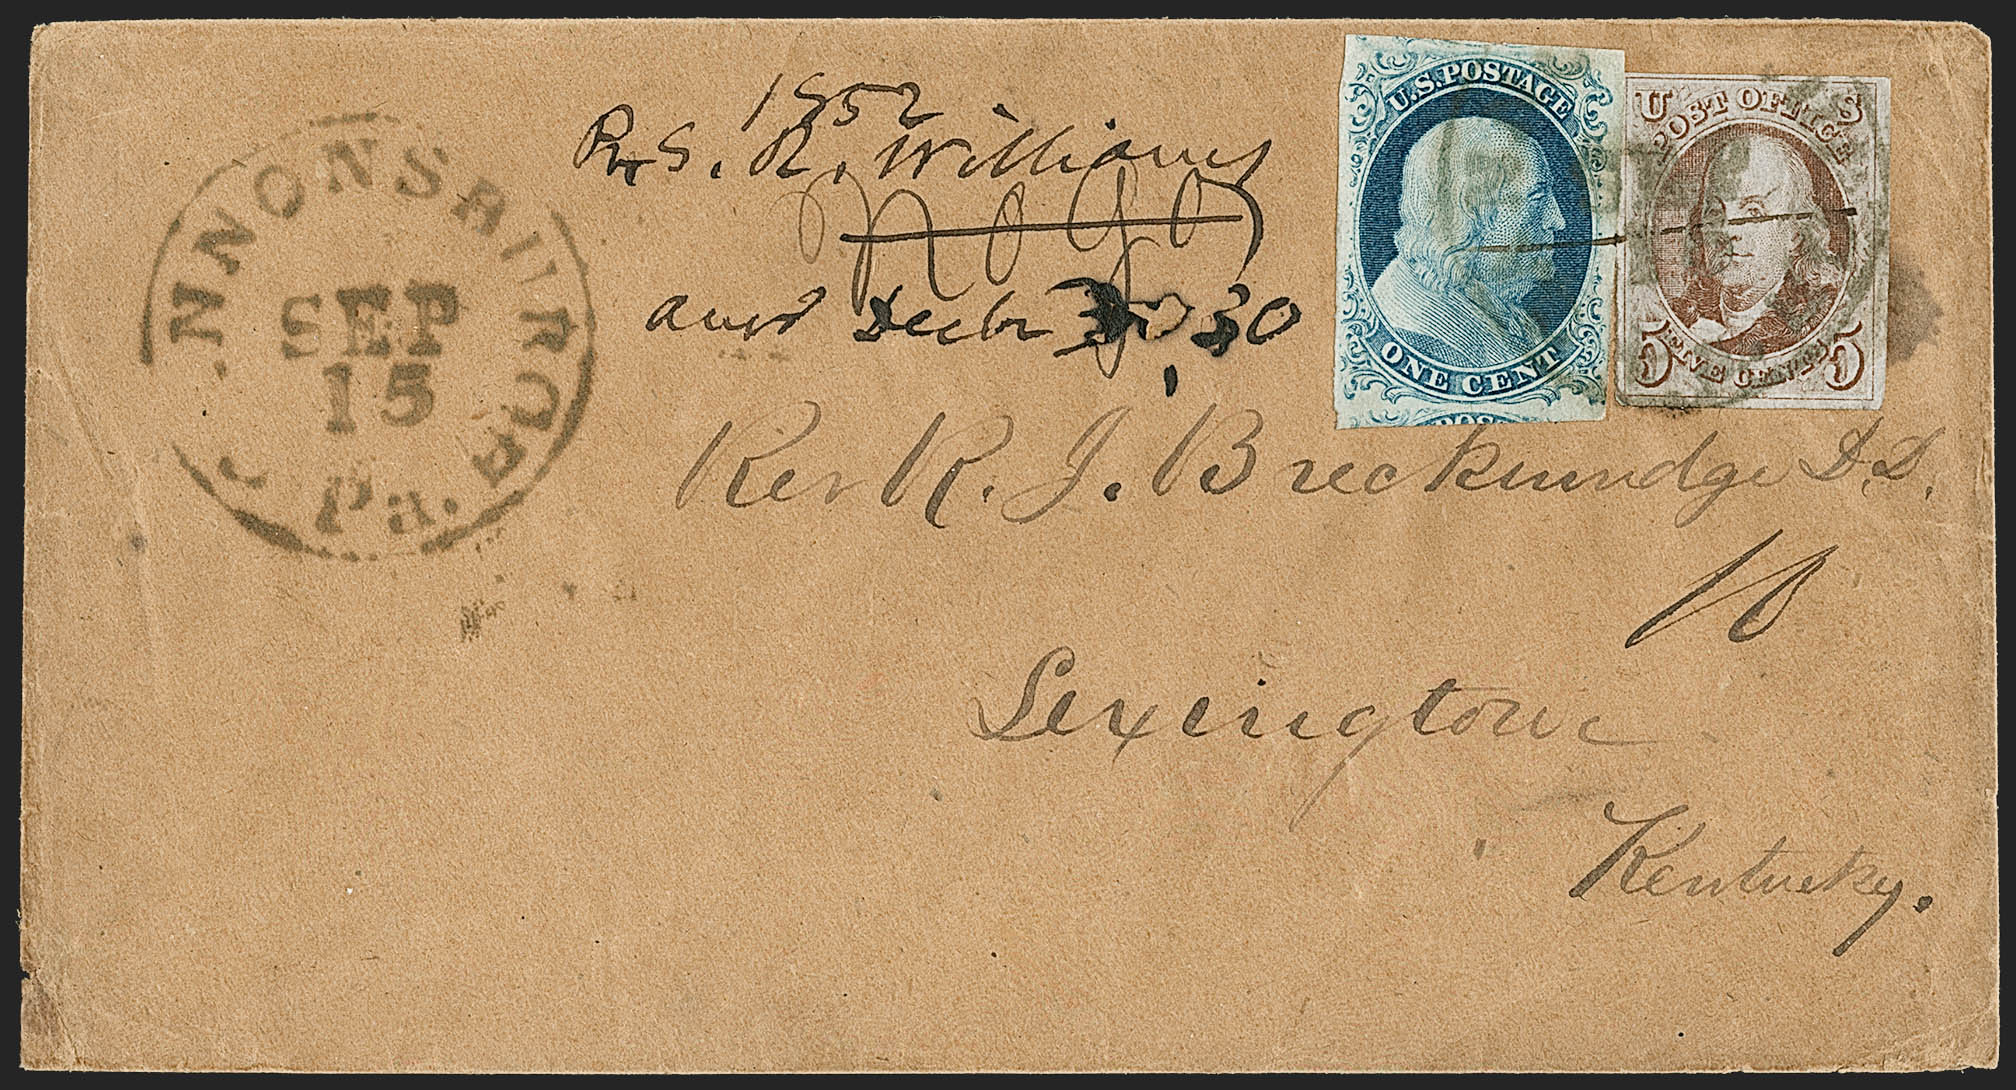 1852
S. R. Williams
Decbr 30
U.S. POSTAGE
ONE CENT
U S
POST OFFICE
FIVE CENTS
5 5
NNONSBURGH
SEP
15
Pa.
Rev R. J. Breckinridge D.D.
10
Lexington
Kentucky.